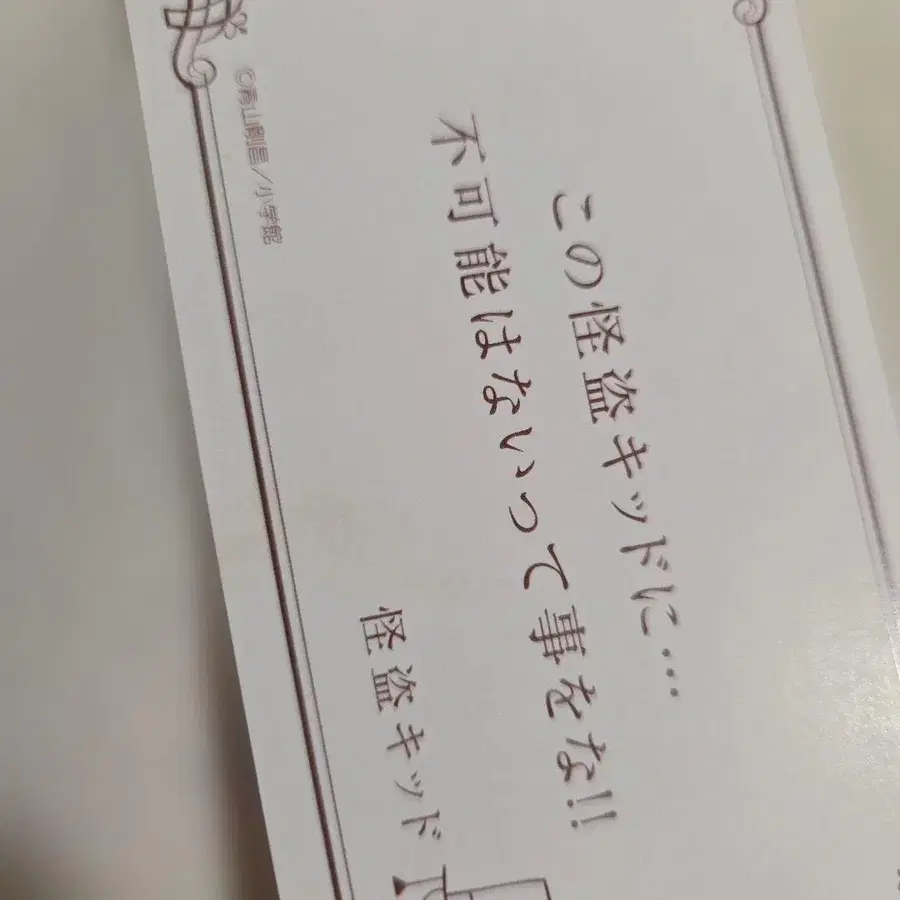 この怪盗キッドに…
不可能はないって事をな!!
怪盗キッド
©青山剛昌／小学館